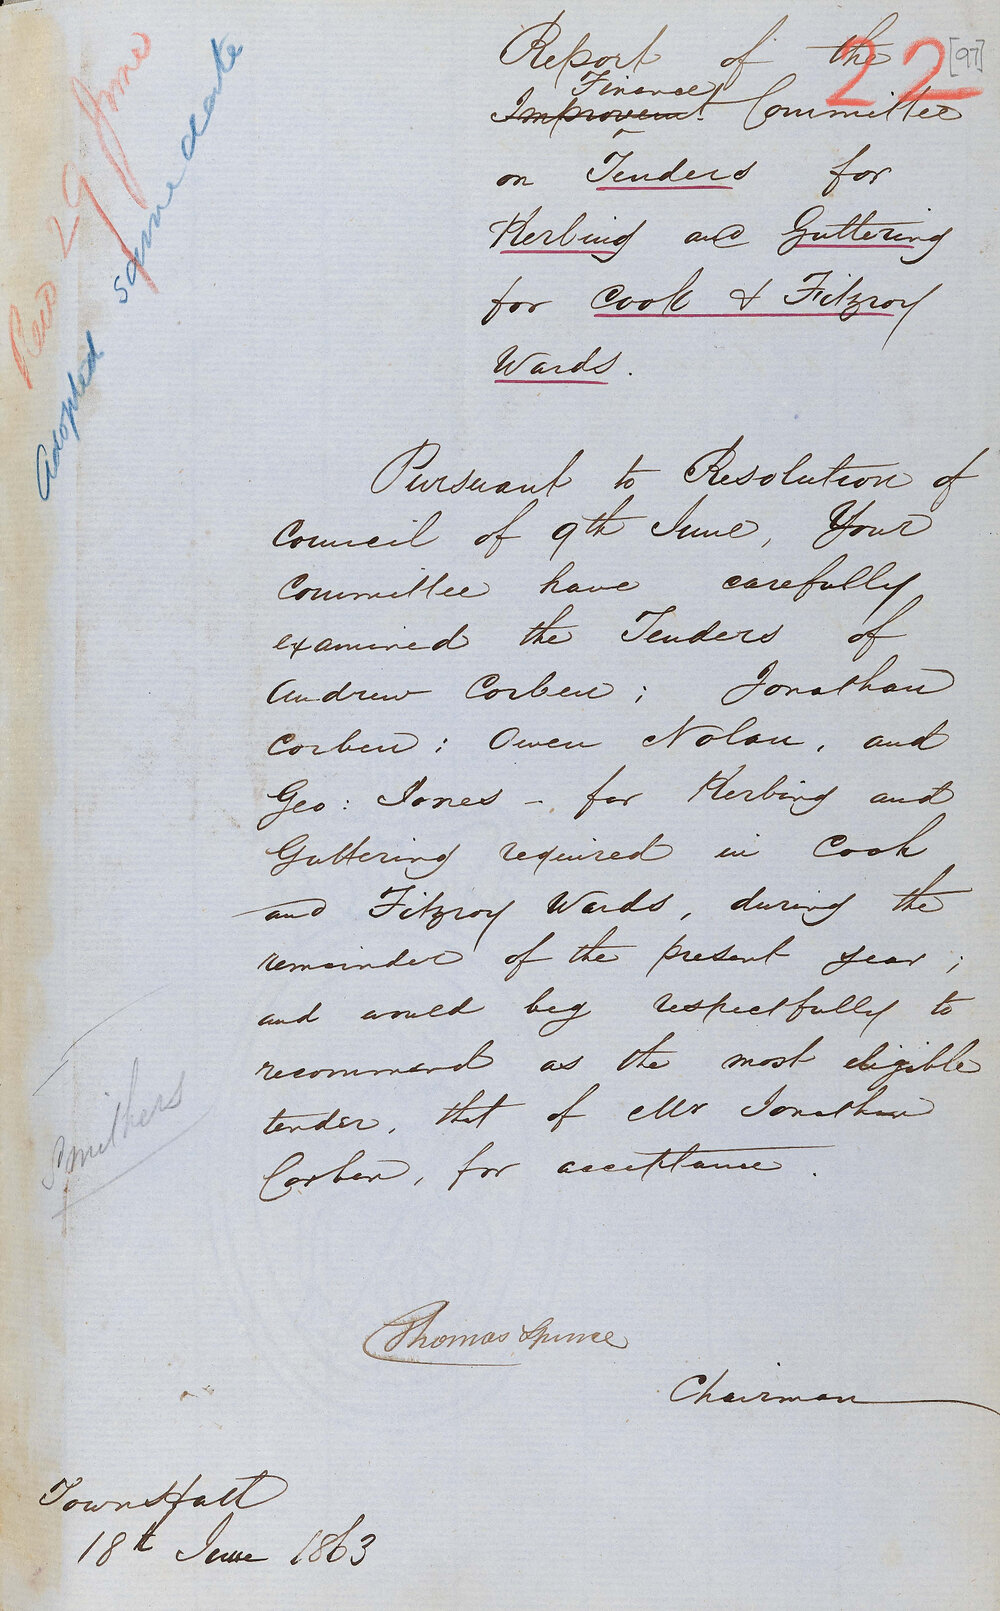 Report of the
22
[97]
Finance
Improvem't Committee
on Tenders for
Kerbing and Guttering
for Cook & Fitzroy
Wards.
Recd 29 June
Adopted same date
Pursuant to Resolution of
Council of 9th June, Your
Committee have carefully
examined the Tenders of
Andrew Corben; Jonathan
Corben; Owen Nolan, and
Geo: Jones – for Kerbing and
Guttering required in Cook
and Fitzroy Wards, during the
remainder of the present year;
and would beg respectfully to
recommend as the most eligible
tender, that of Mr Jonathan
Corben, for acceptance.
Smithers
Thomas Spence
Chairman
Towns Hall
18th June 1863